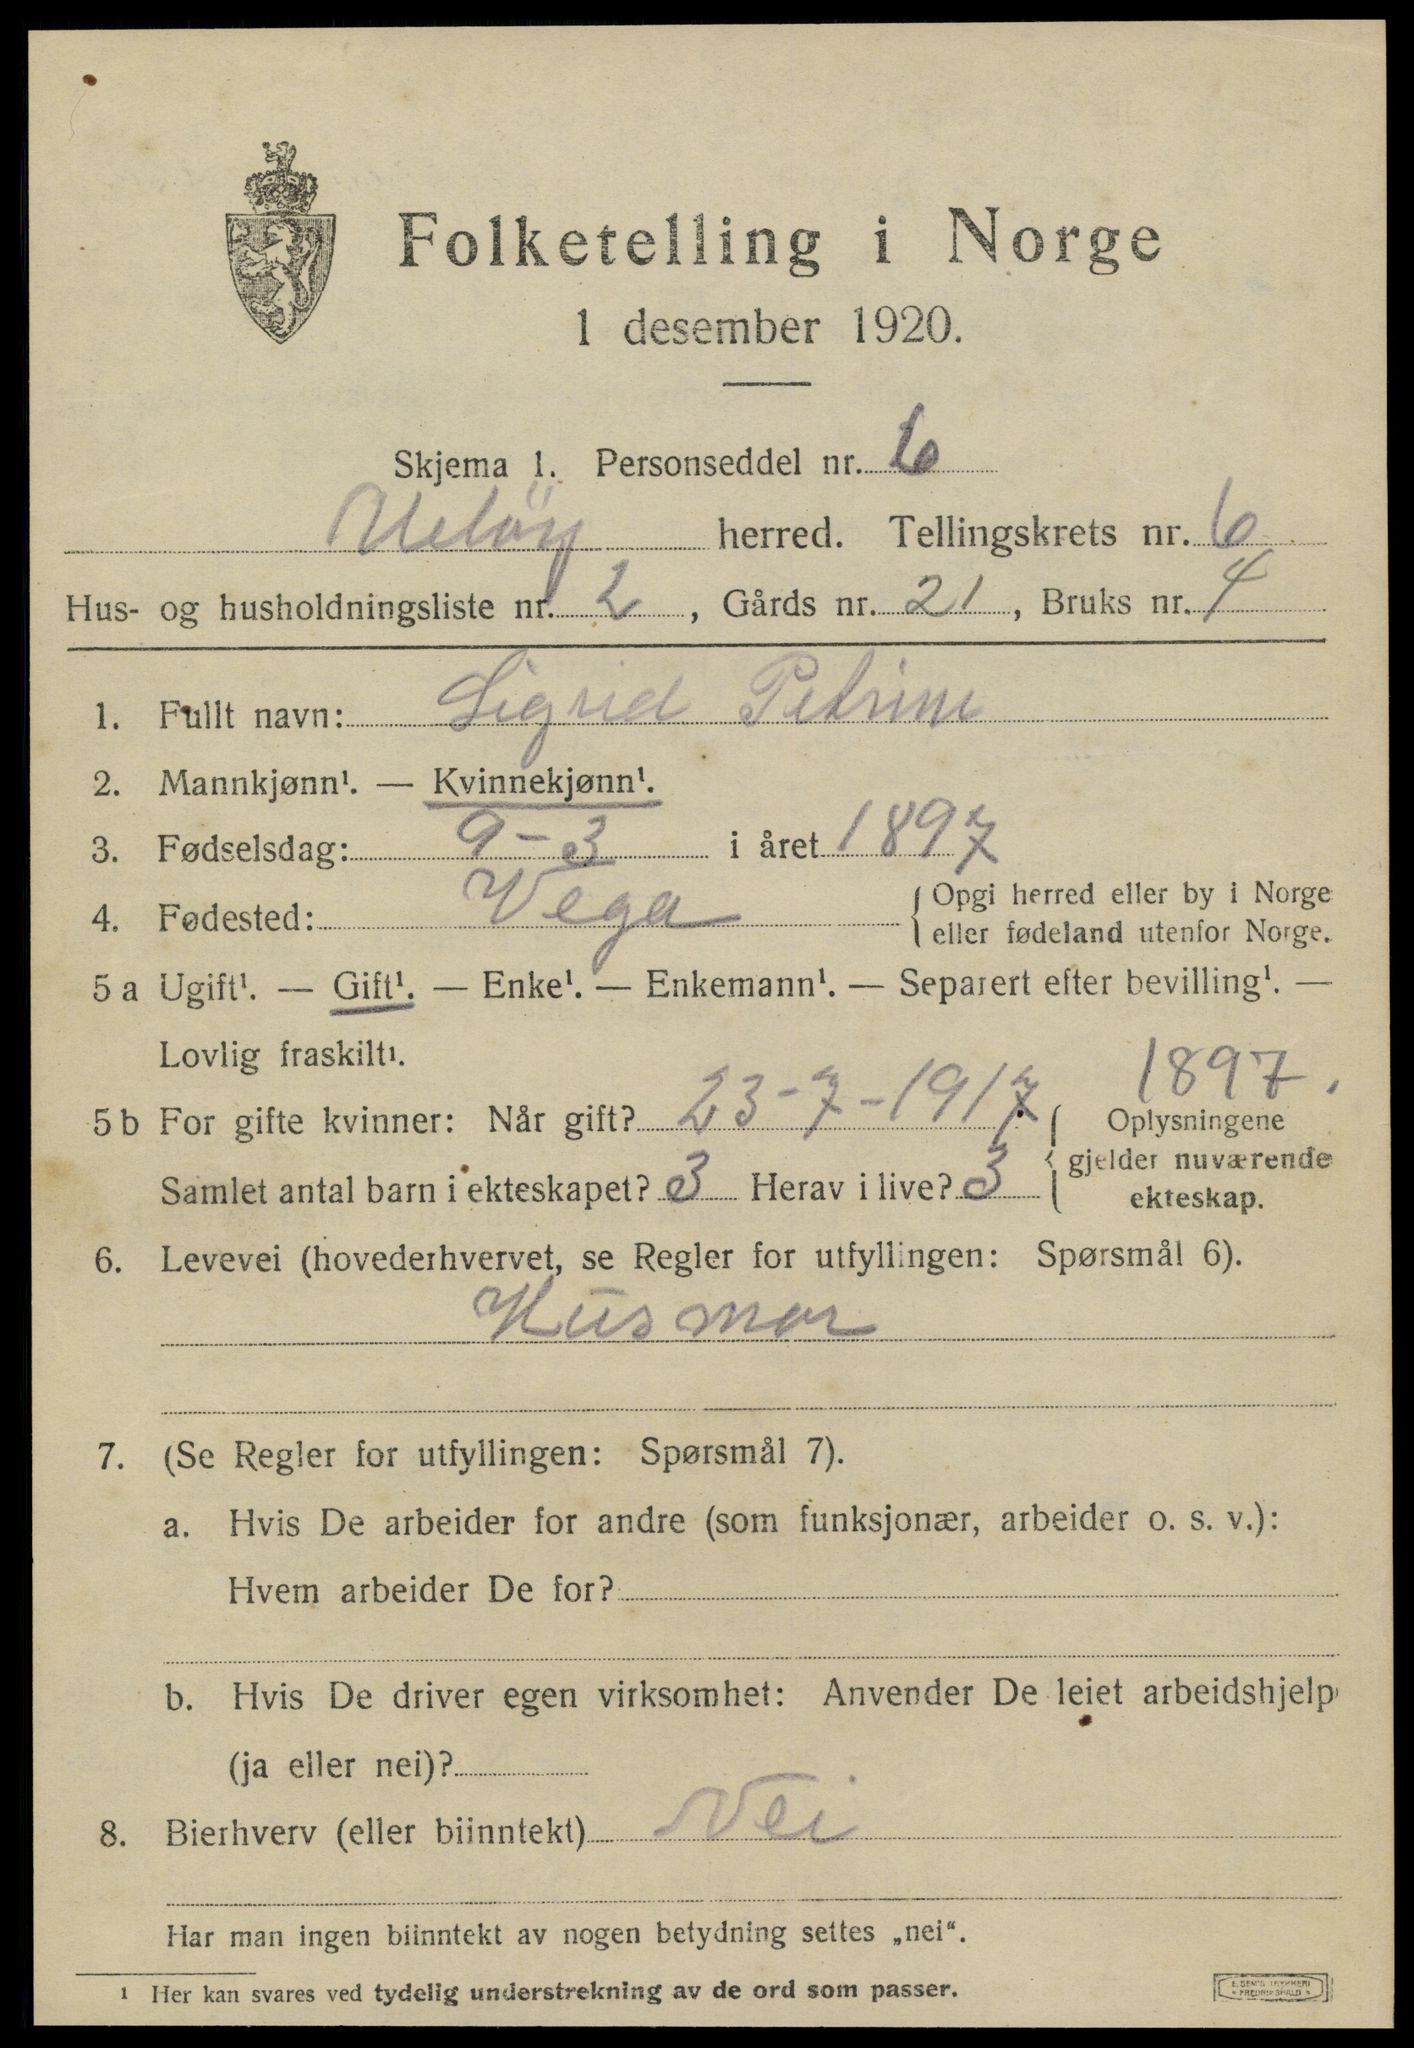 Folketelling i Norge
1 desember 1920.
Skjema 1. Personseddel nr. 6
herred. Tellingskrets nr. 6
Hus- og husholdningsliste nr. 2, Gårds nr. 21, Bruks nr. 4
1. Fullt navn: Sigrid Petrine
2. Mannkjønn¹. — Kvinnekjønn¹.
3. Fødselsdag: 9-3 i året 1897
4. Fødested: Vega { Opgi herred eller by i Norge
eller fødeland utenfor Norge.
5 a Ugift¹. — Gift¹. — Enke¹. — Enkemann¹. — Separert efter bevilling¹. —
Lovlig fraskilt¹.
1897.
5 b For gifte kvinner: Når gift? 23-7-1917. { Oplysningene
gjelder nuværende
Samlet antal barn i ekteskapet? 3 Herav i live? 3 ekteskap.
6. Levevei (hovederhvervet, se Regler for utfyllingen: Spørsmål 6).
Husmor
7. (Se Regler for utfyllingen: Spørsmål 7).
a. Hvis De arbeider for andre (som funksjonær, arbeider o. s. v.):
Hvem arbeider De for?
b. Hvis De driver egen virksomhet: Anvender De leiet arbeidshjelp
(ja eller nei)?
8. Bierhverv (eller biinntekt) Nei
Har man ingen biinntekt av nogen betydning settes „nei“.
¹ Her kan svares ved tydelig understrekning av de ord som passer.